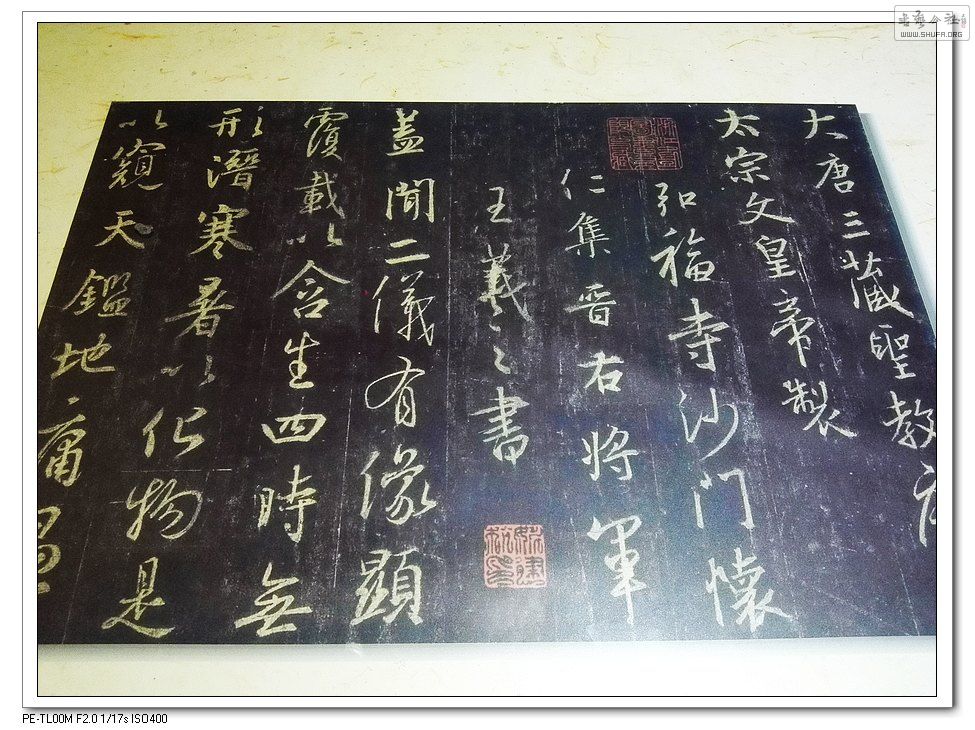 大唐三藏聖教序
太宗文皇帝製
弘福寺沙門懷
仁集晉右將軍
王羲之書
蓋聞二儀有像顯
覆載以含生四時無
形潛寒暑以化物是
以窺天鑑地庸愚
WWW.SHUFA.ORG
PE-TL00M F2.0 1/17s ISO400